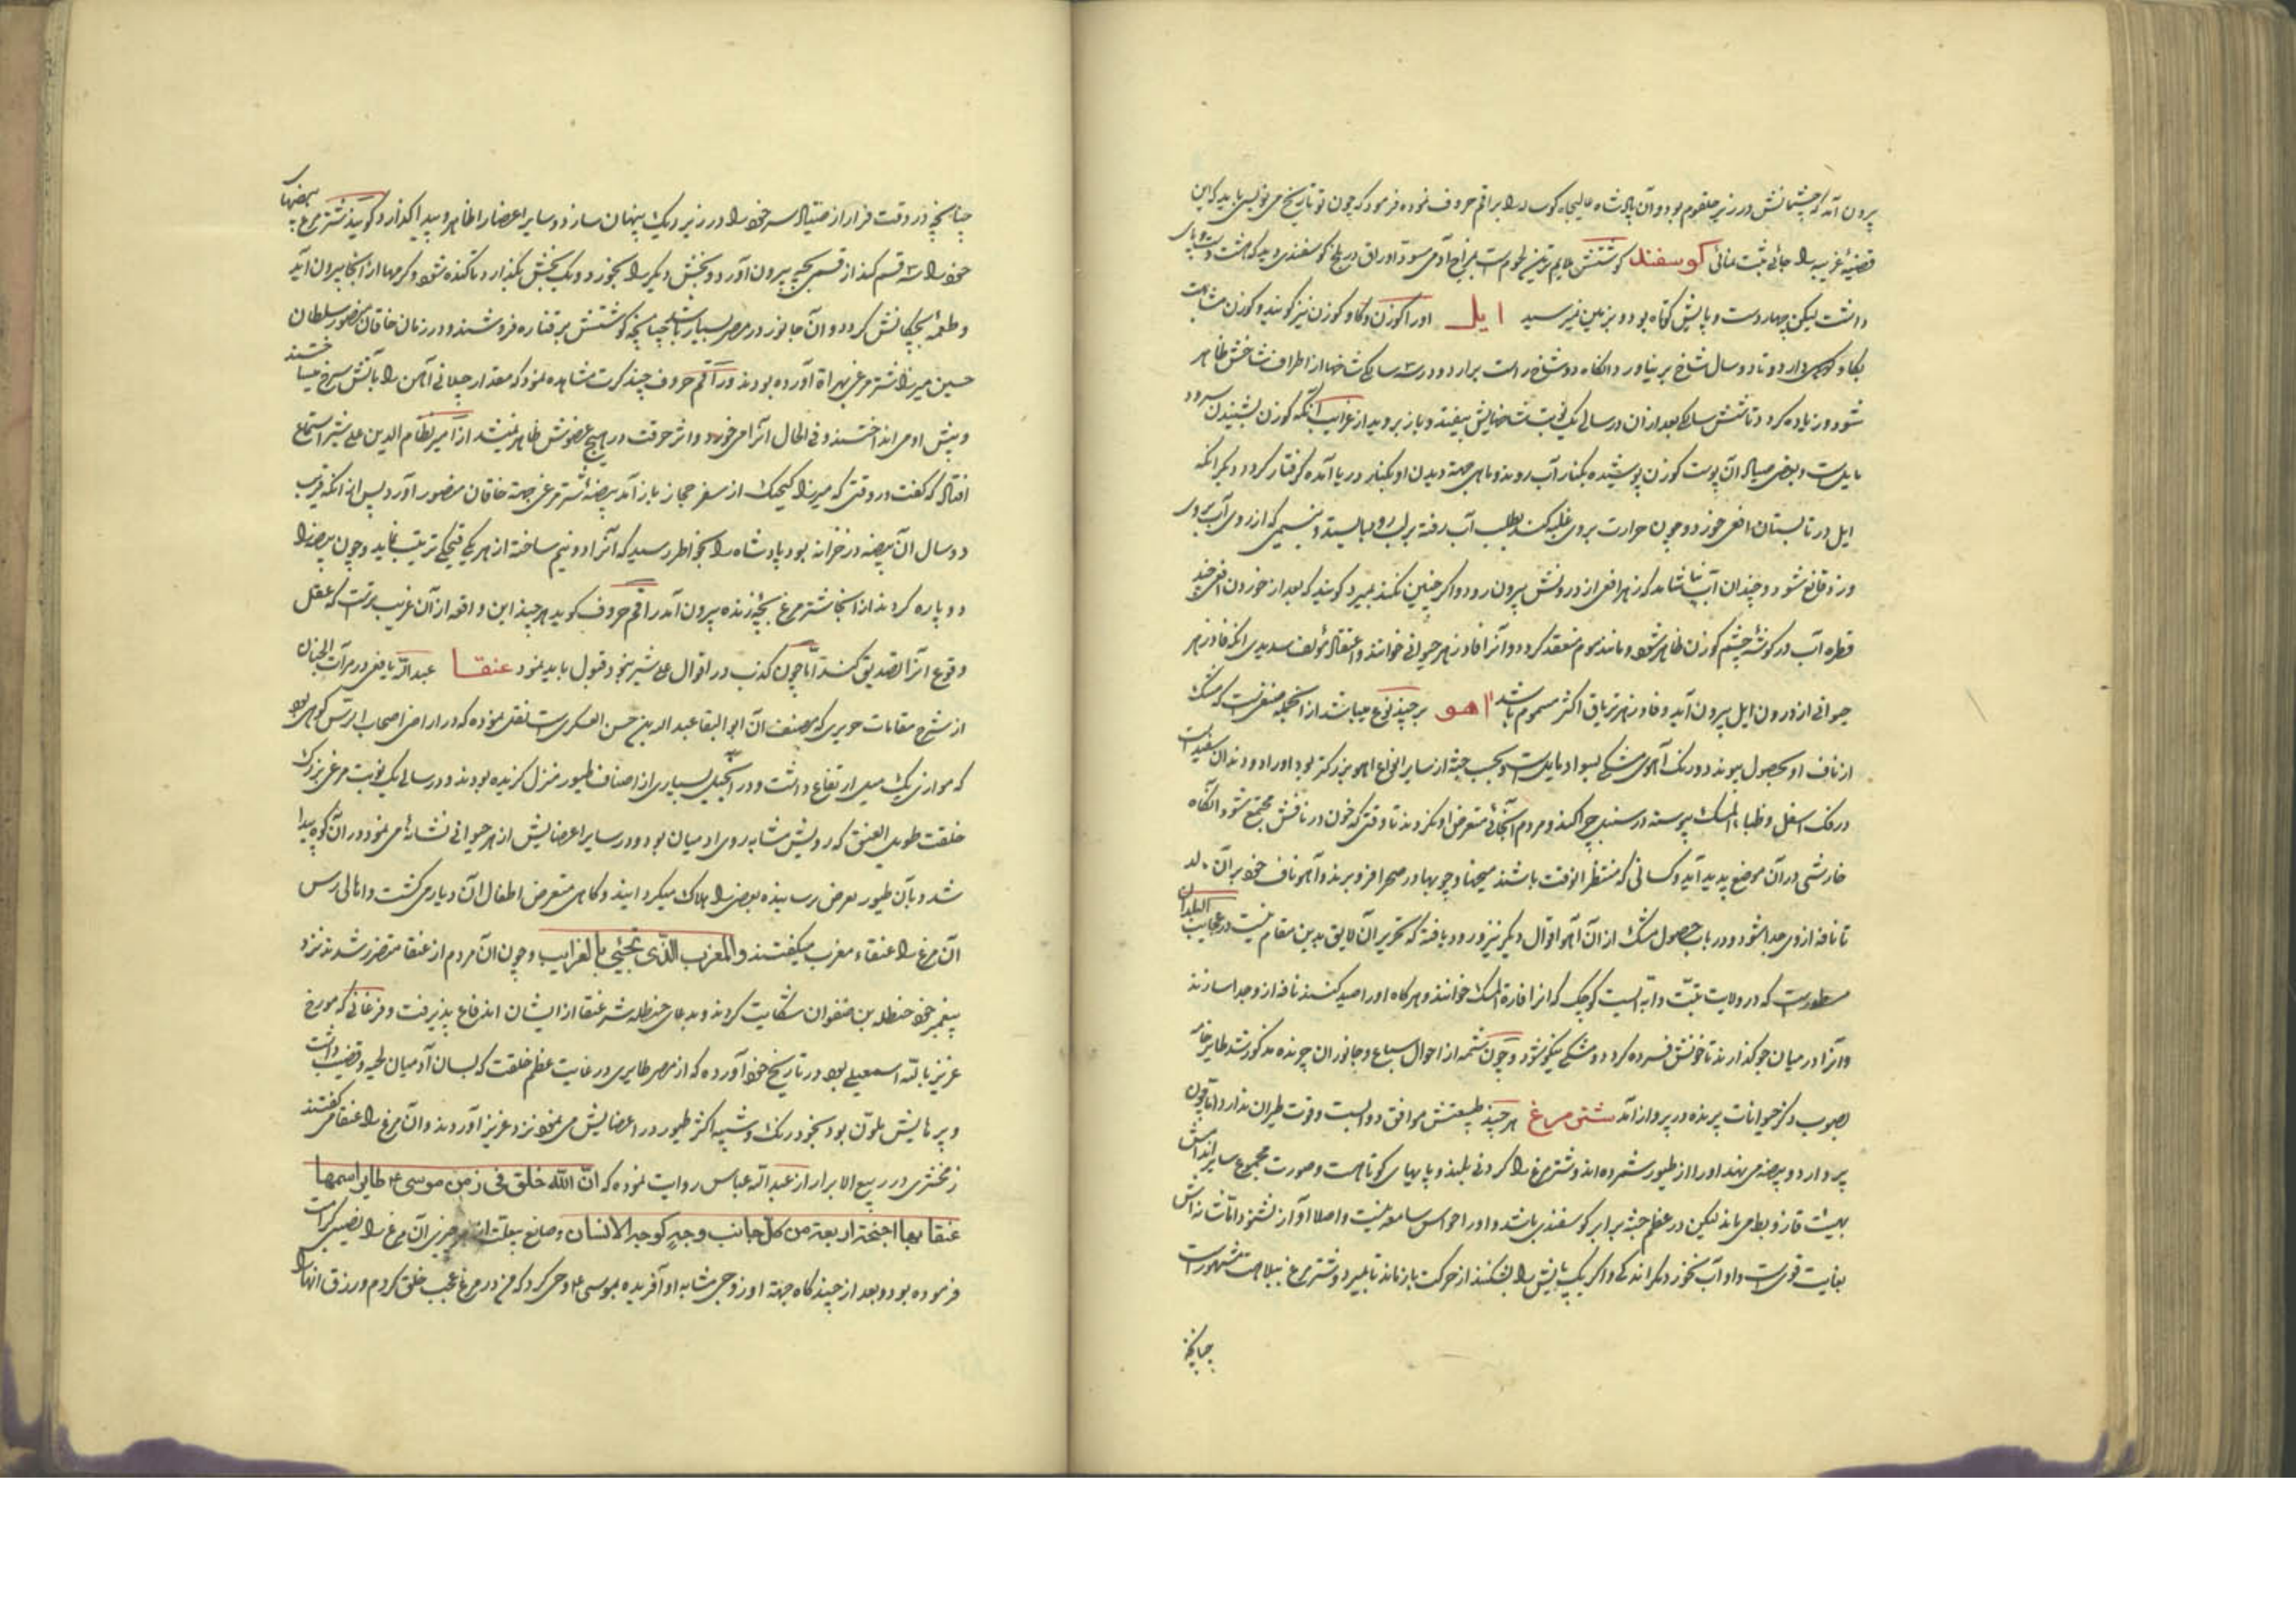 برون آمد که چشمانش در زیر حلقوم بود و آن پادشاه عالیجاه کوساله را براقم حروف نموده فرمود که چون تو تاریخ می نویسی باید که این
قضیهٔ غریبه را جائی ثبت نمائی کوسفند کوشتش ملایم ترین لحوم است بمزاج آدمی مسود اوراق در بلخ کوسفندی دید که هشت دست و پای
داشت لیکن چهار دست و پایش کوتاه بود و بزمین نمیرسید ایل اورا کوزن و کاو کوزن نیز کویند و کوزن مشابهت
بکاو کوهی دارد و تا دو سال شاخ بر نیاورد آنکاه دو شاخ راست برآرد و در سه سالکی شاخها از اطراف شاخش ظاهر
شود و زیاده کردد تا شش سالکی بعد از آن در سالی یک نوبت شاخهایش بیفتد و باز بروید از غرایب آنکه کوزن بشنیدن سرود
مایلست و بعضی صیادان پوست کوزن پوشیده بکنار آب روند و ماهی جهة دیدن او بکنار دریا آمده کرفتار کردد دیکر آنکه
ایل در تابستان افعی خورد و چون حرارت بروی غلبه کند بطلب آب رفته بر لب رود بایستد و بنسیمی که از روی آب بروی
وزد قانع شود و چندان آب نیاشامد که زهر افعی از درونش بیرون رود و اکر چنین نکند بمیرد کویند که بعد از خوردن افعی چند
قطره آب در کوشهٔ چشم کوزن ظاهر شود و مانند موم منعقد کردد و آنرا فادزهر حیوانی خوانند و اعتقاد مؤلف سدیدی آنکه فادزهر
حیوانی از درون ایل بیرون آید و فادزهر تریاق اکثر مسموم باشد اهو بر چند نوع میباشد از آنجمله صنفی است که مشک
از ناف او بحصول پیوندد و رنک آهوی مشکی بسواد مایلست و بحسب جثه از سایر انواع اهو بزرکتر بود اورا دو دندان سفید است
در فک اسفل و ظباء المسک پیوسته در سنبل چرا کند و مردم آنجائی متعرض او نکردند تا وقتی که خون در نافش مجتمع شود آنکاه
خارشی در آن موضع پدید آید و کسانی که منتظر الوقت باشند میخها و چوبها در صحرا فرو برند و آهو ناف خود بر آن مالد
تا نافه از وی جدا شود و در باب حصول مشک از آن آهو اقوال دیکر نیز ورود یافته که تحریر آن لایق بدین مقام نیست در عجایب البلدان
مسطورست که در ولایت تبّت دابه ایست کوچک که انرا فارة المسک خوانند و هر کاه اورا صید کنند نافه از و جدا سازند
و آنرا در میان جو کذارند تا خونش فسرده کردد و مشکی نیکو شود و چون شمهٔ از احوال سباع و جانوران چرنده مذکور شد طایر خامه
بصوب ذکر حیوانات پرنده در پرواز آمد شتر مرغ هر چند طبیعتش موافق دوابست و قوت طیران ندارد اما چون
پر دارد و بیضه می نهد اورا از طیور شمرده اند و شتر مرغ را کردنی بلند و پایهای کوتاهست و صورت مجموع سایر اندامش
بهیئت قاز و بط می ماند لیکن در عظم جثه برابر کوسفندی باشد و اورا حواس سامعه نیست و اصلا آواز نشنود اما شامه اش
بغایت قویست و او آب نخورد مکر اندکی و اکر یک پایش را بشکنند از حرکت باز ماند تا بمیرد و شتر مرغ ببلاهت مشهورست
چنانچه
چنانچه در وقت فرار از صیاد سر خود را در زیر ریک پنهان سازد و سایر اعضا را ظاهر و پیدا کذارد کویند شتر مرغ بیضهای
خود را سه قسم کند از قسمی بچه بیرون آورد و بخش دیکر را بخورد و یک بخش بکذارد تا کنده شود و کرمها از آنجا بیرون آید
و طعمهٔ بچکانش کردد و آن جانور در مصر بسیار باشد چنانچه کوشتش بر قناره فروشند و در زمان خاقان منصور سلطان
حسین میرزا شتر مرغی بهراة آورده بودند و راقم حروف چند کرت مشاهده نمود که مقدار چلانی آهن را بآتش سرخ میساختند
و پیش او می انداختند و فی الحال آنرا میخورد و اثر حرقت در هیچ عضوش ظاهر نمیشد از امیر نظام الدین علی شیر استماع
افتاد که کفت در وقتی که میرزا کیچک از سفر حجاز باز آمد بیضهٔ شتر مرغی جهة خاقان منصور آورد پس از آنکه قریب
دو سال آن بیضه در خزانه بود پادشاه را بخاطر رسید که آنرا دو نیم ساخته از هر یکی قبحکی ترتیب نماید و چون بیضه را
دو پاره کردند از آنجا شتر مرغ بچهٔ زنده بیرون آمد راقم حروف کوید هر چند این واقعه از آن غریب ترست که عقل
وقوع آنرا تصدیق کند اما چون کذب در اقوال علی شیر نبود قبول باید نمود عنقا عبد الله یافعی در مرآت الجنان
از شرح مقامات حریری که مصنف آن ابو البقا عبد الله بن حسن العسکریست نقل نموده که در اراضی اصحاب الرس کوهی بود
که موازی یک میل ارتفاع داشت و در آن جبل بسیاری از اصناف طیور منزل کزیده بودند و در سالی یک نوبت مرغی بزرک
خلقت طویل العنق که رویش مشابه روی ادمیان بود و در سایر اعضایش از هر حیوانی نشانهٔ می نمود در آن کوه پیدا
شد و بآن طیور تعرض رسانیده بعضی را هلاک میکردانید و کاهی متعرض اطفال آن دیار می کشت و اهالی رس
آن مرغ را عنقاء مغرب میکفتند و المغرب الذی تجیٔی بالغرایب و چون آن مردم از عنقا متضرر شدند نزد
پیغمبر خود حنظله بن صفوان شکایت کردند و بدعای حنظله شر عنقا از ایشان اندفاع پذیرفت و فرغانی که مورخ
عزیز بالله اسمعیلی بود در تاریخ خود آورده که از مصر طایری در غایت عظم خلقت که بسان آدمیان لحیه و قضیب داشت
و پرهایش ملون بود بچند رنک و شبیه اکثر طیور در اعضایش می نمود نزد عزیز آوردند و آن مرغ را عنقا می کفتند
زمخشری در ربیع الابرار از عبد الله عباس روایت نموده که انّ الله خلق فی زمن موسی ع طایرا اسمها
عنقا بها اجنحة اربعة من کلّ جانب وجهٍ کوجه الانسان و صانع بیعلت از هر چیزی آن مرغ را نصیبی کرامت
فرموده بود و بعد از چند کاه جهة او زوجی مشابه او آفریده بموسی ع وحی کرد که من دو مرغ عجب خلق کردم و رزق آنها را